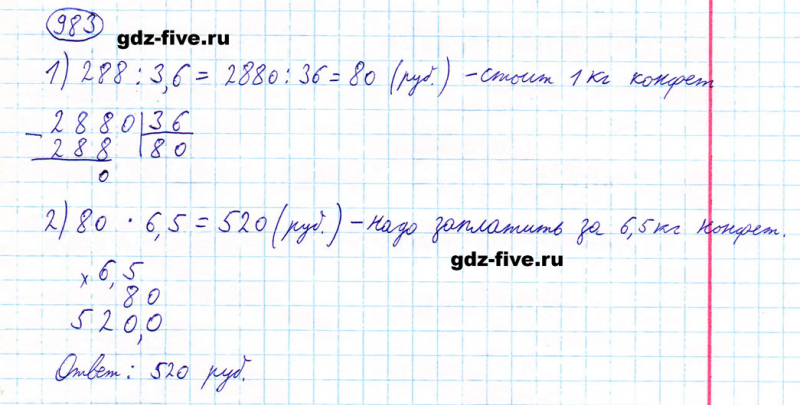 983
gdz-five.ru
1) 288 : 3,6 = 2880 : 36 = 80 (руб.) - стоит 1 кг конфет
- 2880 | 36
288 | 80
0
2) 80 · 6,5 = 520 (руб.) - надо заплатить за 6,5 кг конфет.
gdz-five.ru
× 6,5
80
520,0
Ответ: 520 руб.